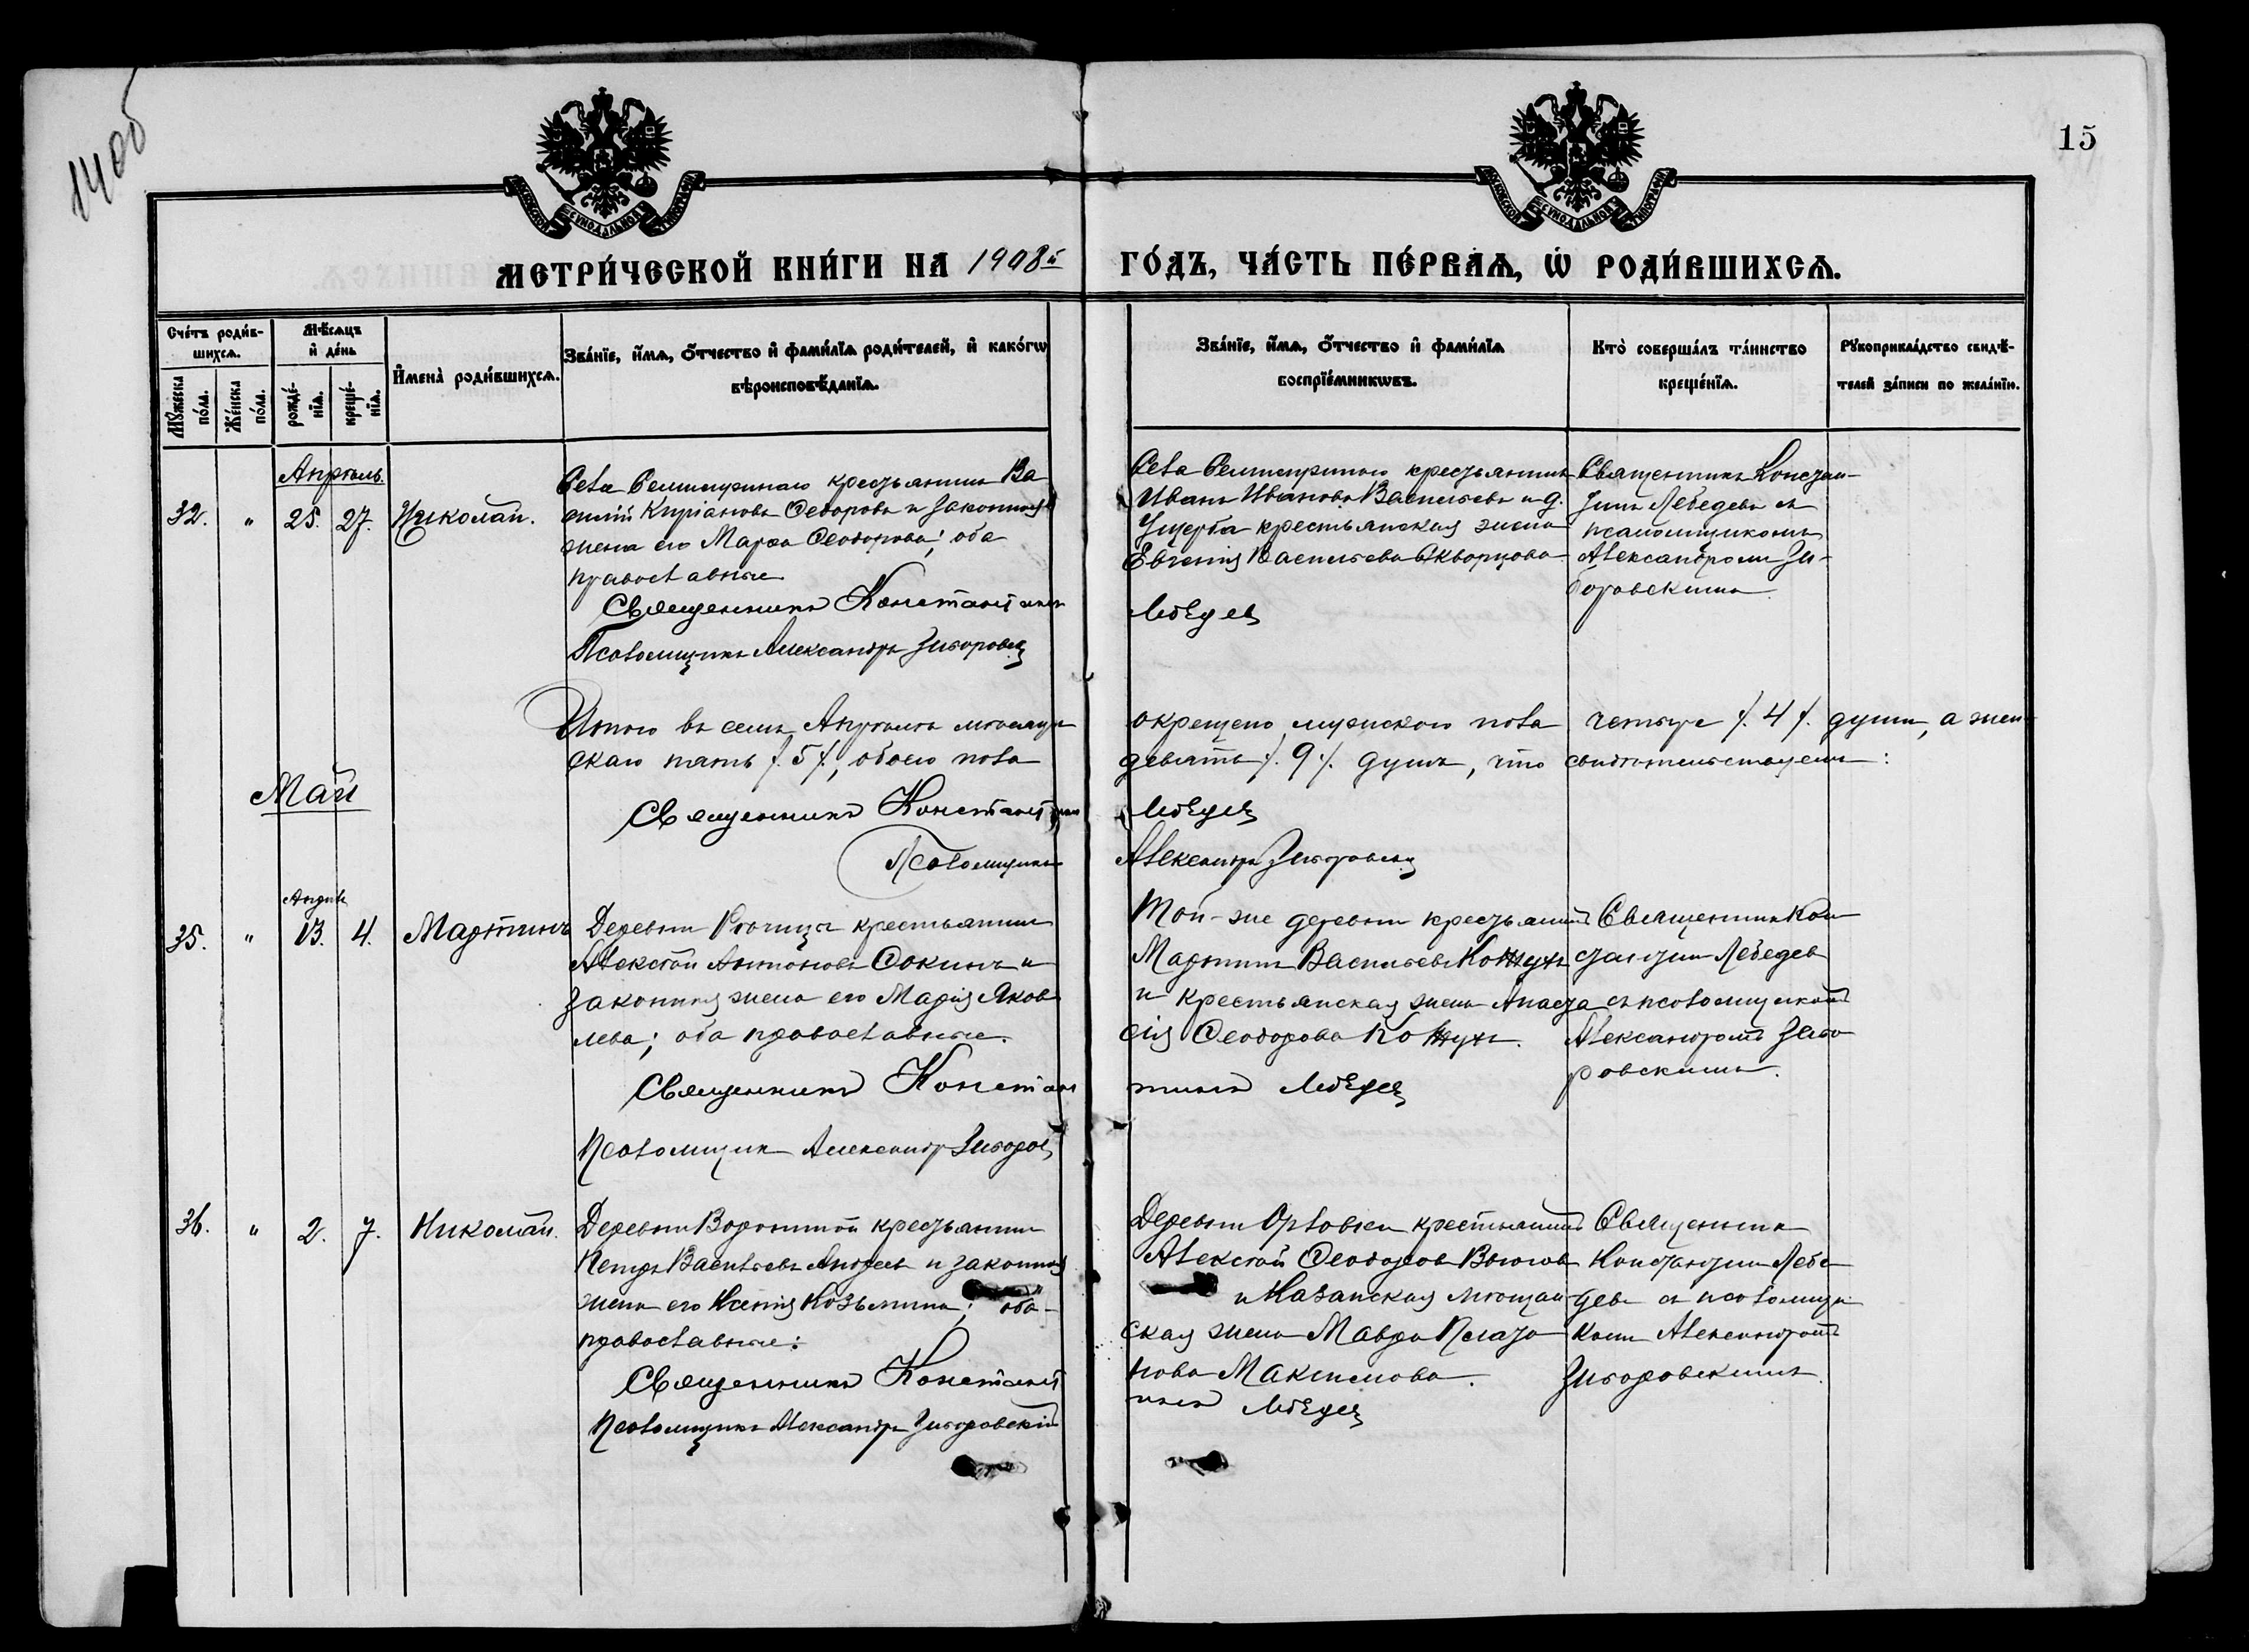 14 об
15
МОСКОВСКОЙ СѴНОДАЛЬНОЙ ТИПОГРАФІИ
МОСКОВСКОЙ СѴНОДАЛЬНОЙ ТИПОГРАФІИ
МЕТРИ́ЧЕСКОЙ КНИ́ГИ НА 1908й ГО́ДЪ, ЧА́СТЬ ПЕ́РВАѦ, Ѡ҆ РОДИ́ВШИХСѦ.
Сче́тъ роди́в-
шихсѧ.
Мꙋ́жеска по́ла.
Же́нска по́ла.
Мѣ́сѧцъ
и҆ де́нь
рожде́-
нїѧ.
креще́-
нїѧ.
И҆мена̀ роди́вшихсѧ.
Зва́нїе, и҆́мѧ, ѻ҆́тчество и҆ фами́лїѧ роди́телей, и҆ како́гѡ
вѣроисповѣ́данїѧ.
Зва́нїе, и҆́мѧ, ѻ҆́тчество и҆ фами́лїѧ
воспрїе́мникѡвъ.
Кто̀ соверша́лъ та́инство
креще́нїѧ.
Рꙋкоприкла́дство свидѣ́-
телей за́писи по жела́нїю.
Апрѣль.
32. " 25. 27. Николай.
Села крестьянинъ Ва
силій Кипріановъ Ѳедоровъ и законная
жена его Марѳа Ѳеодорова; оба
православные
Священникъ Константинъ
Псаломщикъ Александръ Зиборовскій
Села крестьянинъ
Иванъ Ивановъ Васильевъ и д.
крестьянская жена
Евгенія Васильева Скворцова
Лебедев
Священникъ Констан-
тинъ Лебедевъ съ
псаломщикомъ
Александромъ Зи-
боровскимъ
Итого въ семъ Апрѣлѣ мѣсяцѣ окрещено мужского пола четыре /. 4 /. души, а жен
скаго пять /. 5 /., обоего пола девять /. 9 /. душъ, что свидѣтельствуемъ:
Священникъ Константинъ Лебедев
Псаломщикъ Александръ Зиборовскій
Май
Апрѣль
35. " 13. 4. Мартинъ
Деревни крестьянинъ
Алексѣй Антоновъ Ѳокинъ и
законная жена его Марія Яков
лева; оба православные.
Священникъ Констан
Псаломщик Александр Зиборов
Той-же деревни крестьянинъ
Мартинъ Васильевъ Кожухъ
и крестьянская жена Анаста
сія Ѳеодорова Кожухъ.
тинъ Лебедев
Священник Кон
стантин Лебедев
съ псаломщикомъ
Александромъ Зибо
ровскимъ.
36. " 2. 7. Николай.
Деревни крестьянин
Петръ Васильевъ Андреев и законная
жена его Ксенія Козьмина; оба
православные:
Священникъ Констант
Псаломщикъ Александръ Зиборовскій
Деревни Орловки крестьянинъ
Алексѣй Ѳеодоров
и Казанская мѣщан
ская жена Мавра Плато
нова Максимова.
инъ Лебедев
Священник
Константин Лебе
дев съ псаломщи
ком Александромъ
Зиборовскимъ.